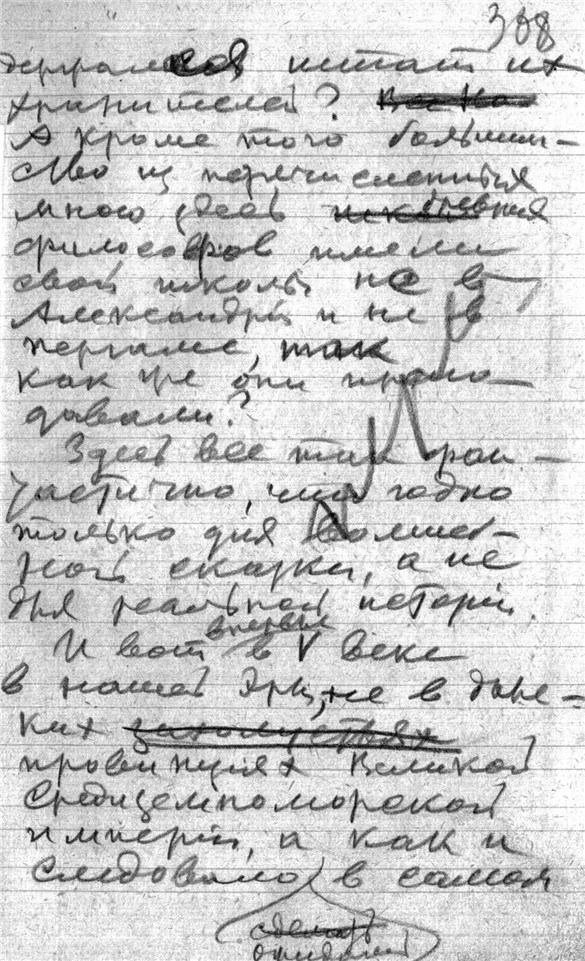 308
читать их
хранителей?
А кроме того большин-
ство из перечисленных
мною здесь древних
философов имели
свои школы не в
Александрии и не в
Пергаме, так
как же они препо-
давали?
Здесь все так фан-
тастично, что годно
только для волшеб-
ной сказки, а не
для реальной истории.
И вот впервые в V веке
в нашей эры, не в дале-
ких захолустьях
провинциях Великой
Средиземноморской
империи, а как и
следовало в самом
сделать
ожидать